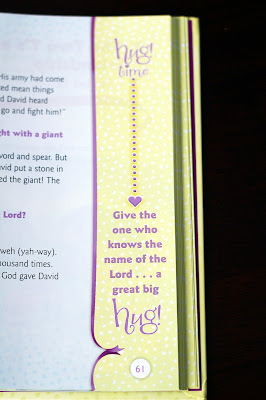 His army had come
ed mean things
d David heard
go and fight him!"
ght with a giant
word and spear. But
avid put a stone in
ed the giant! The
Lord?
weh (yah-way).
housand times.
God gave David
hug!
time
Give the
one who
knows the
name of the
Lord . . . a
great big
hug!
61